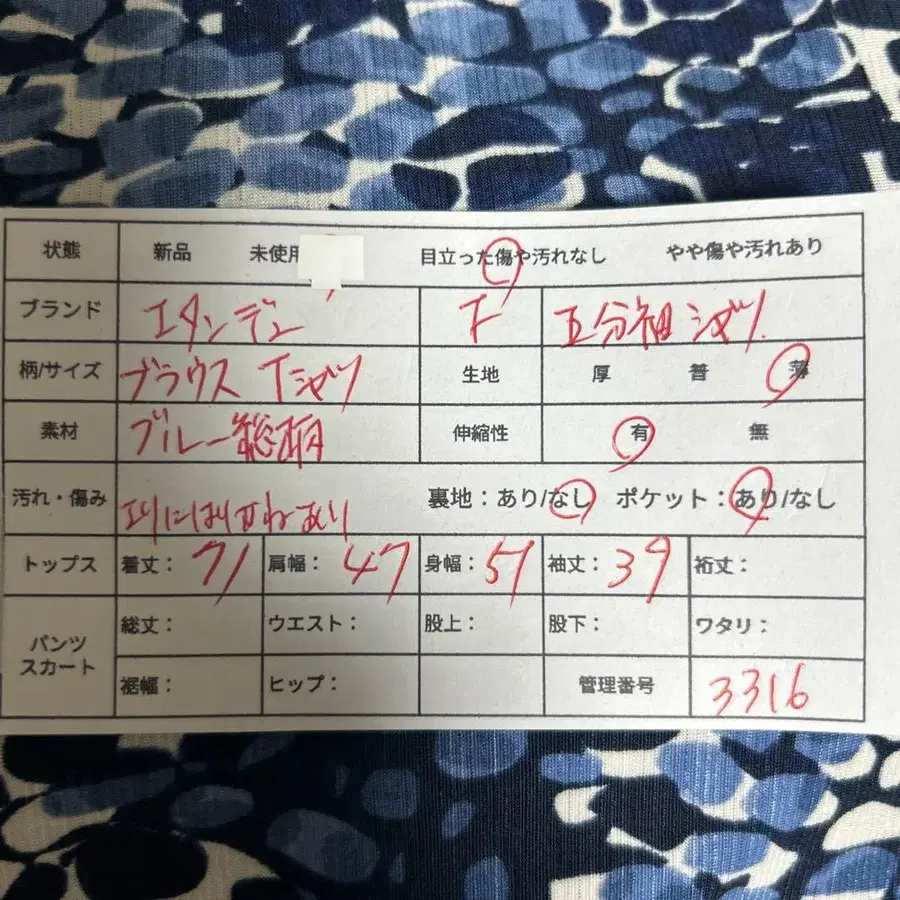 状態 新品 未使用 目立った傷や汚れなし やや傷や汚れあり
ブランド エタンデュ F 五分袖シャツ.
柄/サイズ ブラウス Tシャツ 生地 厚 普 薄
素材 ブルー総柄 伸縮性 有 無
汚れ・傷み えりにはりがねあり 裏地:あり/なし ポケット:あり/なし
トップス 着丈: 71 肩幅: 47 身幅: 51 袖丈: 39 裄丈:
パンツ スカート 総丈: ウエスト: 股上: 股下: ワタリ:
裾幅: ヒップ: 管理番号 3316